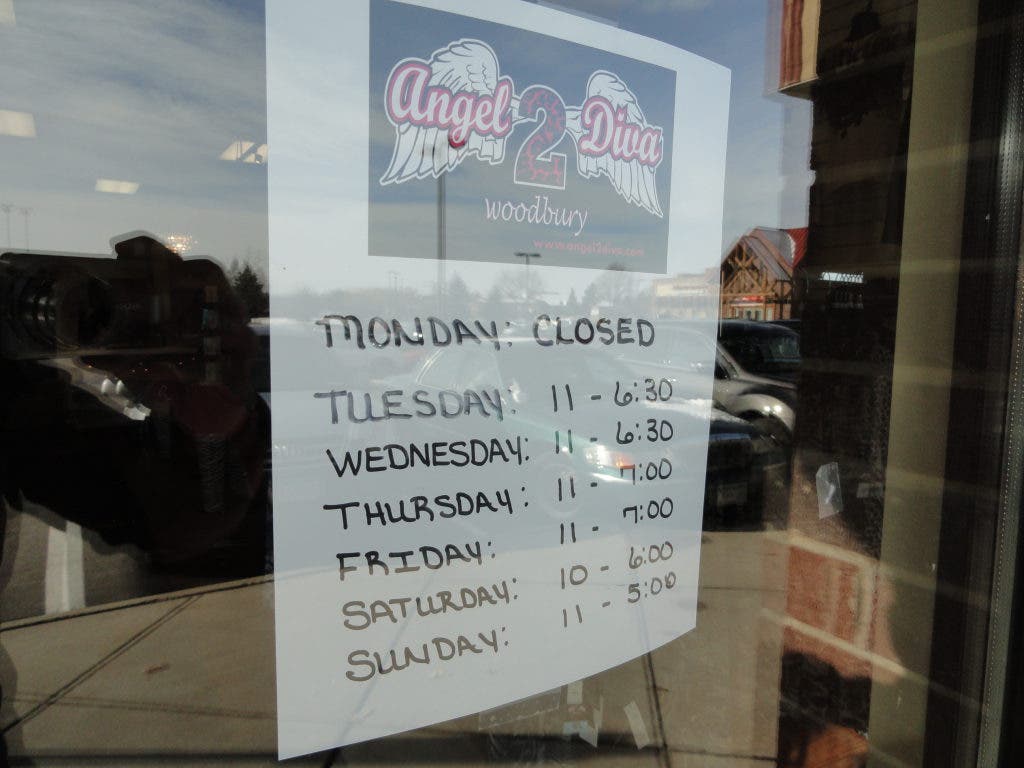 Angel 2 Diva
woodbury
www.angel2diva.com
MONDAY: CLOSED
TUESDAY: 11 - 6:30
WEDNESDAY: 11 - 6:30
THURSDAY: 11 - 7:00
FRIDAY: 11 - 7:00
SATURDAY: 10 - 6:00
SUNDAY: 11 - 5:00